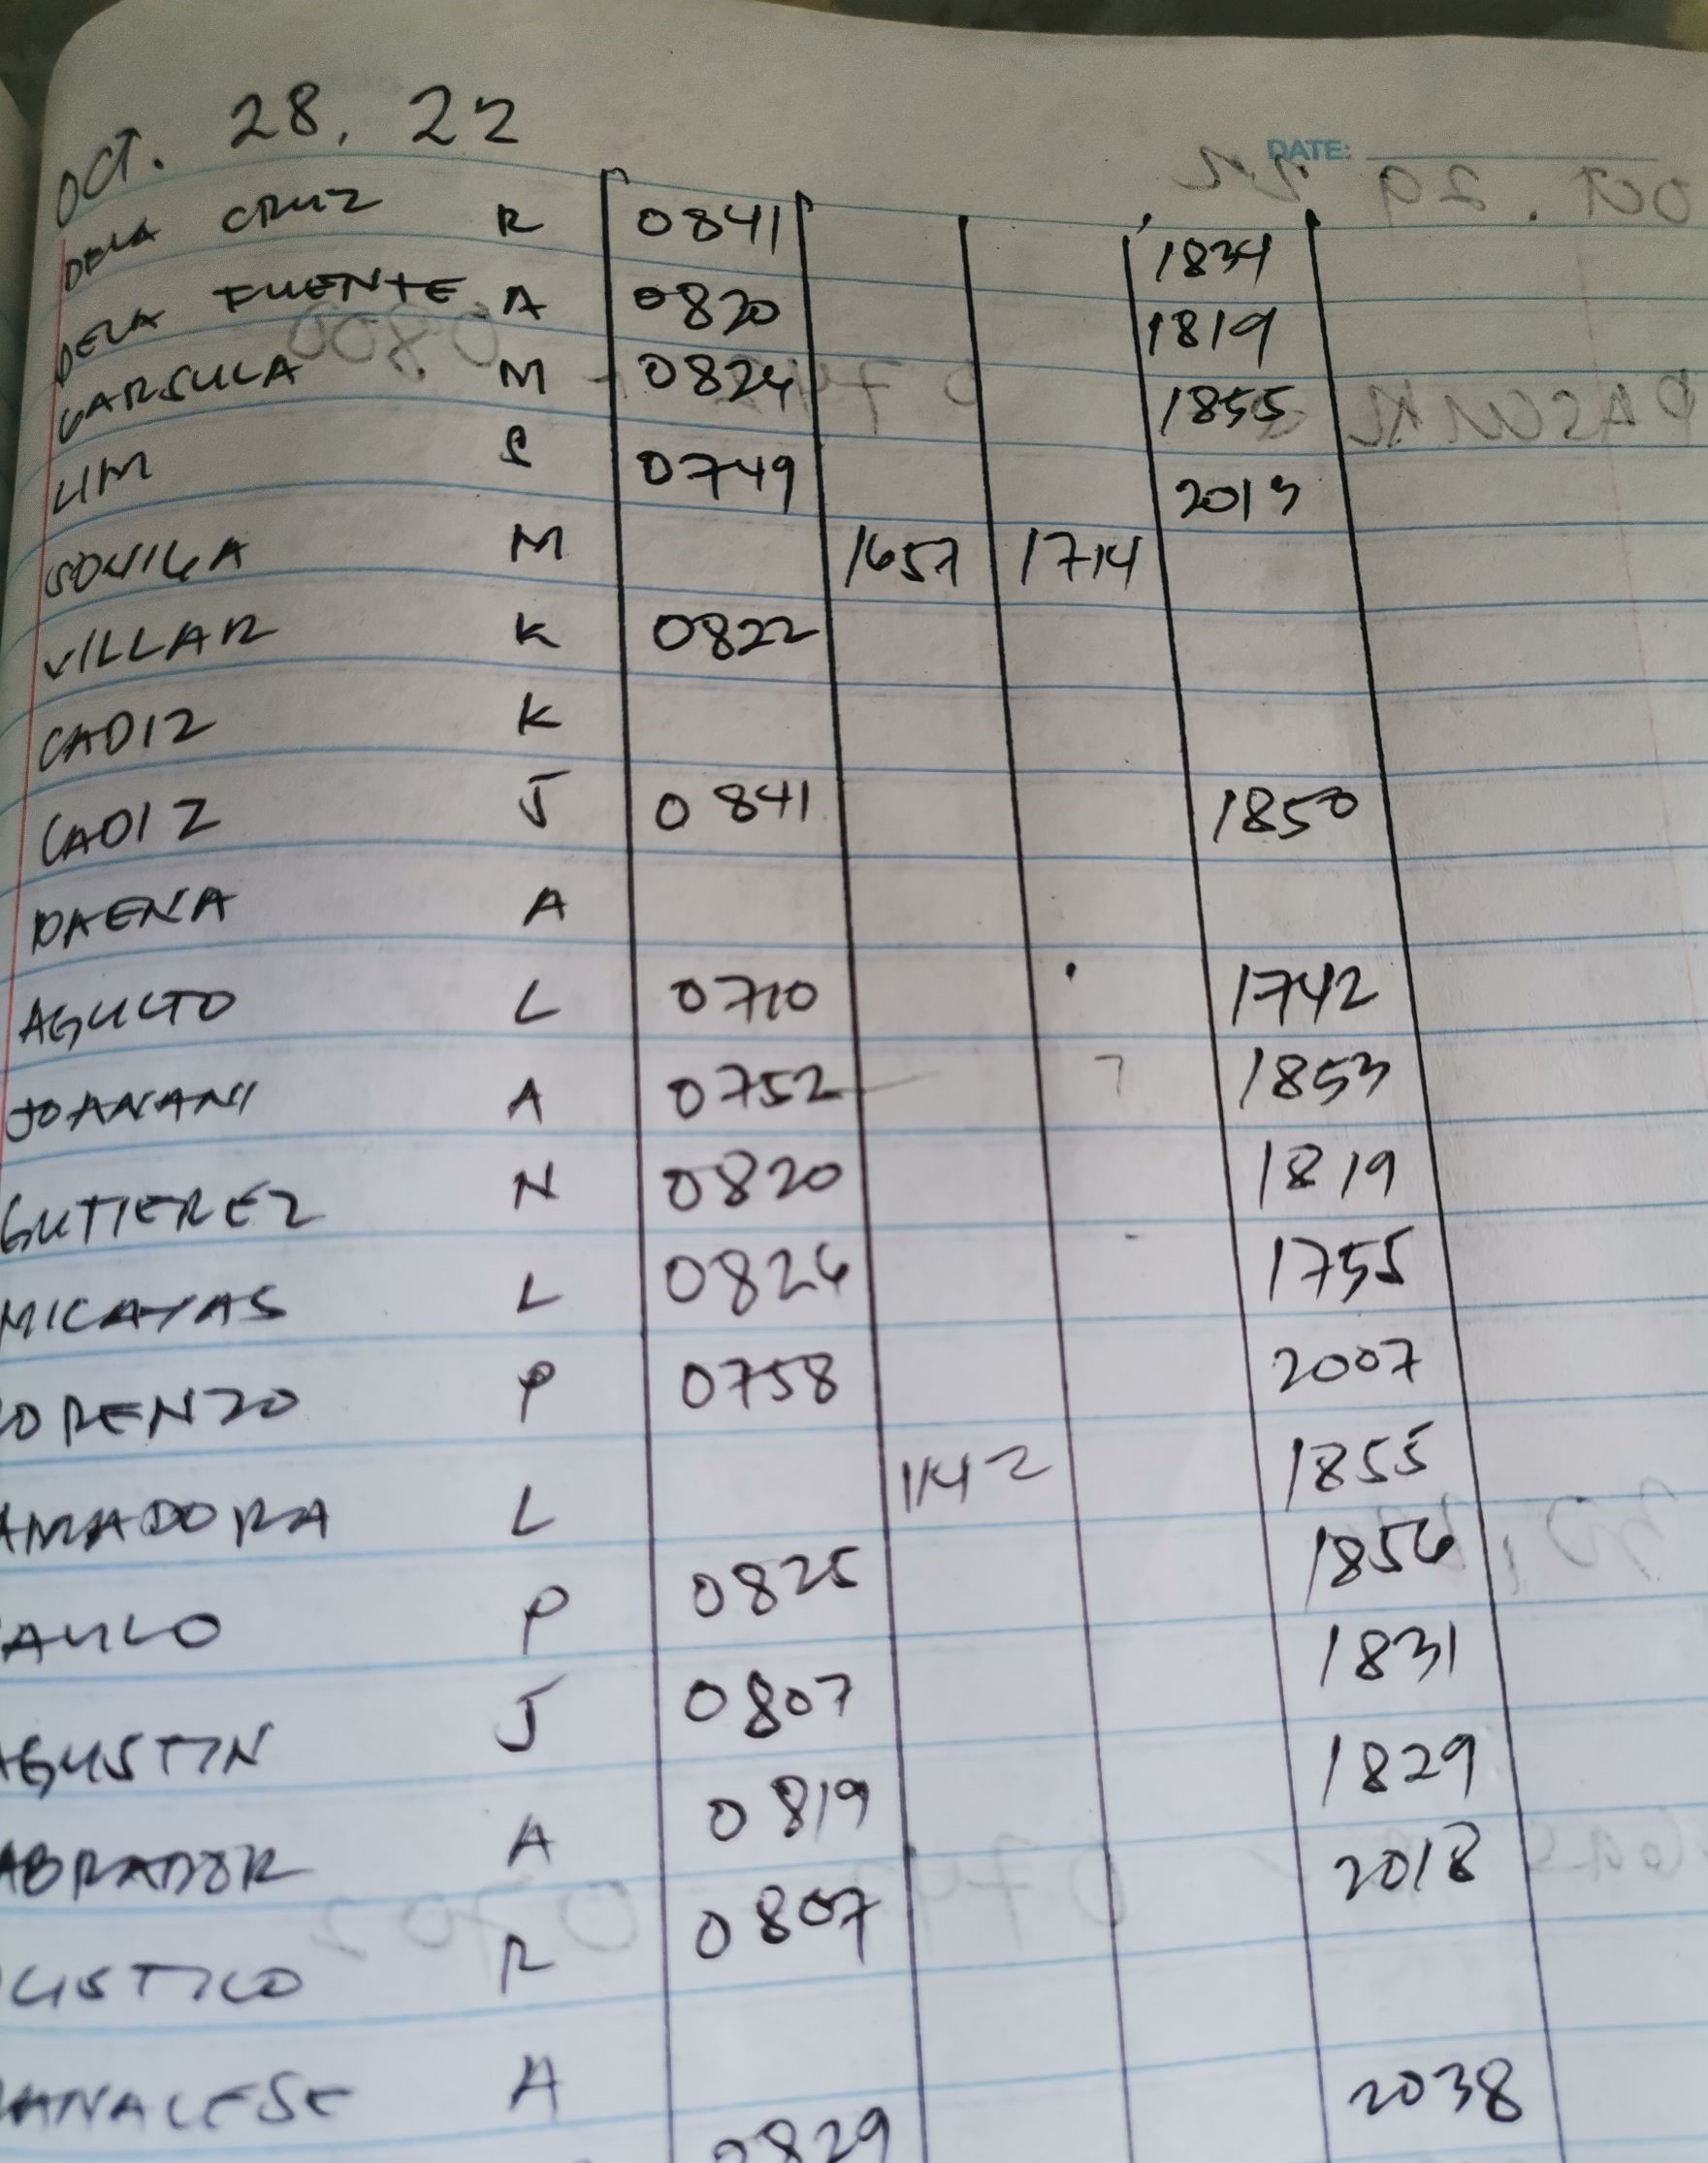 OCT. 28, 22
DATE:
DELA CRUZ R 0841 1834
DELA FUENTE A 0820 1819
GARSULA M 0824 1855
LIM S 0749 2013
M 1657 1714
VILLAR K 0822
CADIZ K
CADIZ J 0841 1850
DAENA A
AGULTO L 0710 1742
JOANANI A 0752 1853
GUTIEREZ N 0820 1819
MICAYAS L 0826 1755
ORENZO P 0758 2007
AMADORA L 1142 1855
AULO P 0825 1856
AGUSTIN J 0807 1831
ABRADOR A 0819 1829
USTICO R 0807 2018
ANALESE A 2038
0829